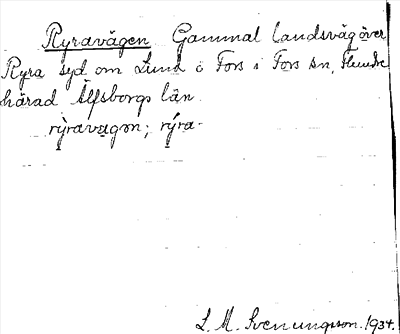 Ryravägen Gammal landsväg över
Ryra syd om Lund o Fors i Fors sn, Flundre
härad Älfsborgs län
rýravagən; rýra-
L. M. Svenungsson. 1934.